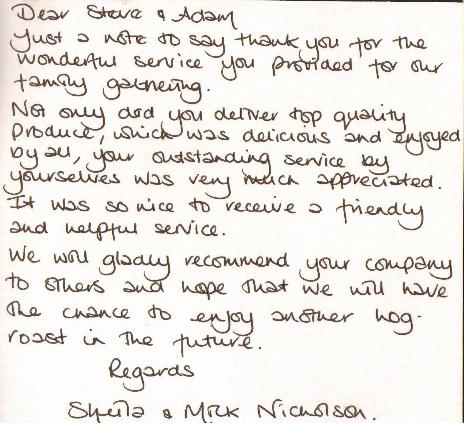 Dear Steve & Adam
Just a note to say thank you for the
wonderful service you provided for our
family gathering.
Not only did you deliver top quality
produce, which was delicious and enjoyed
by all, your outstanding service by
yourselves was very much appreciated.
It was so nice to receive a friendly
and helpful service.
We will gladly recommend your company
to others and hope that we will have
the chance to enjoy another hog-
roast in the future.
Regards
Sheila & Mick Nicholson.